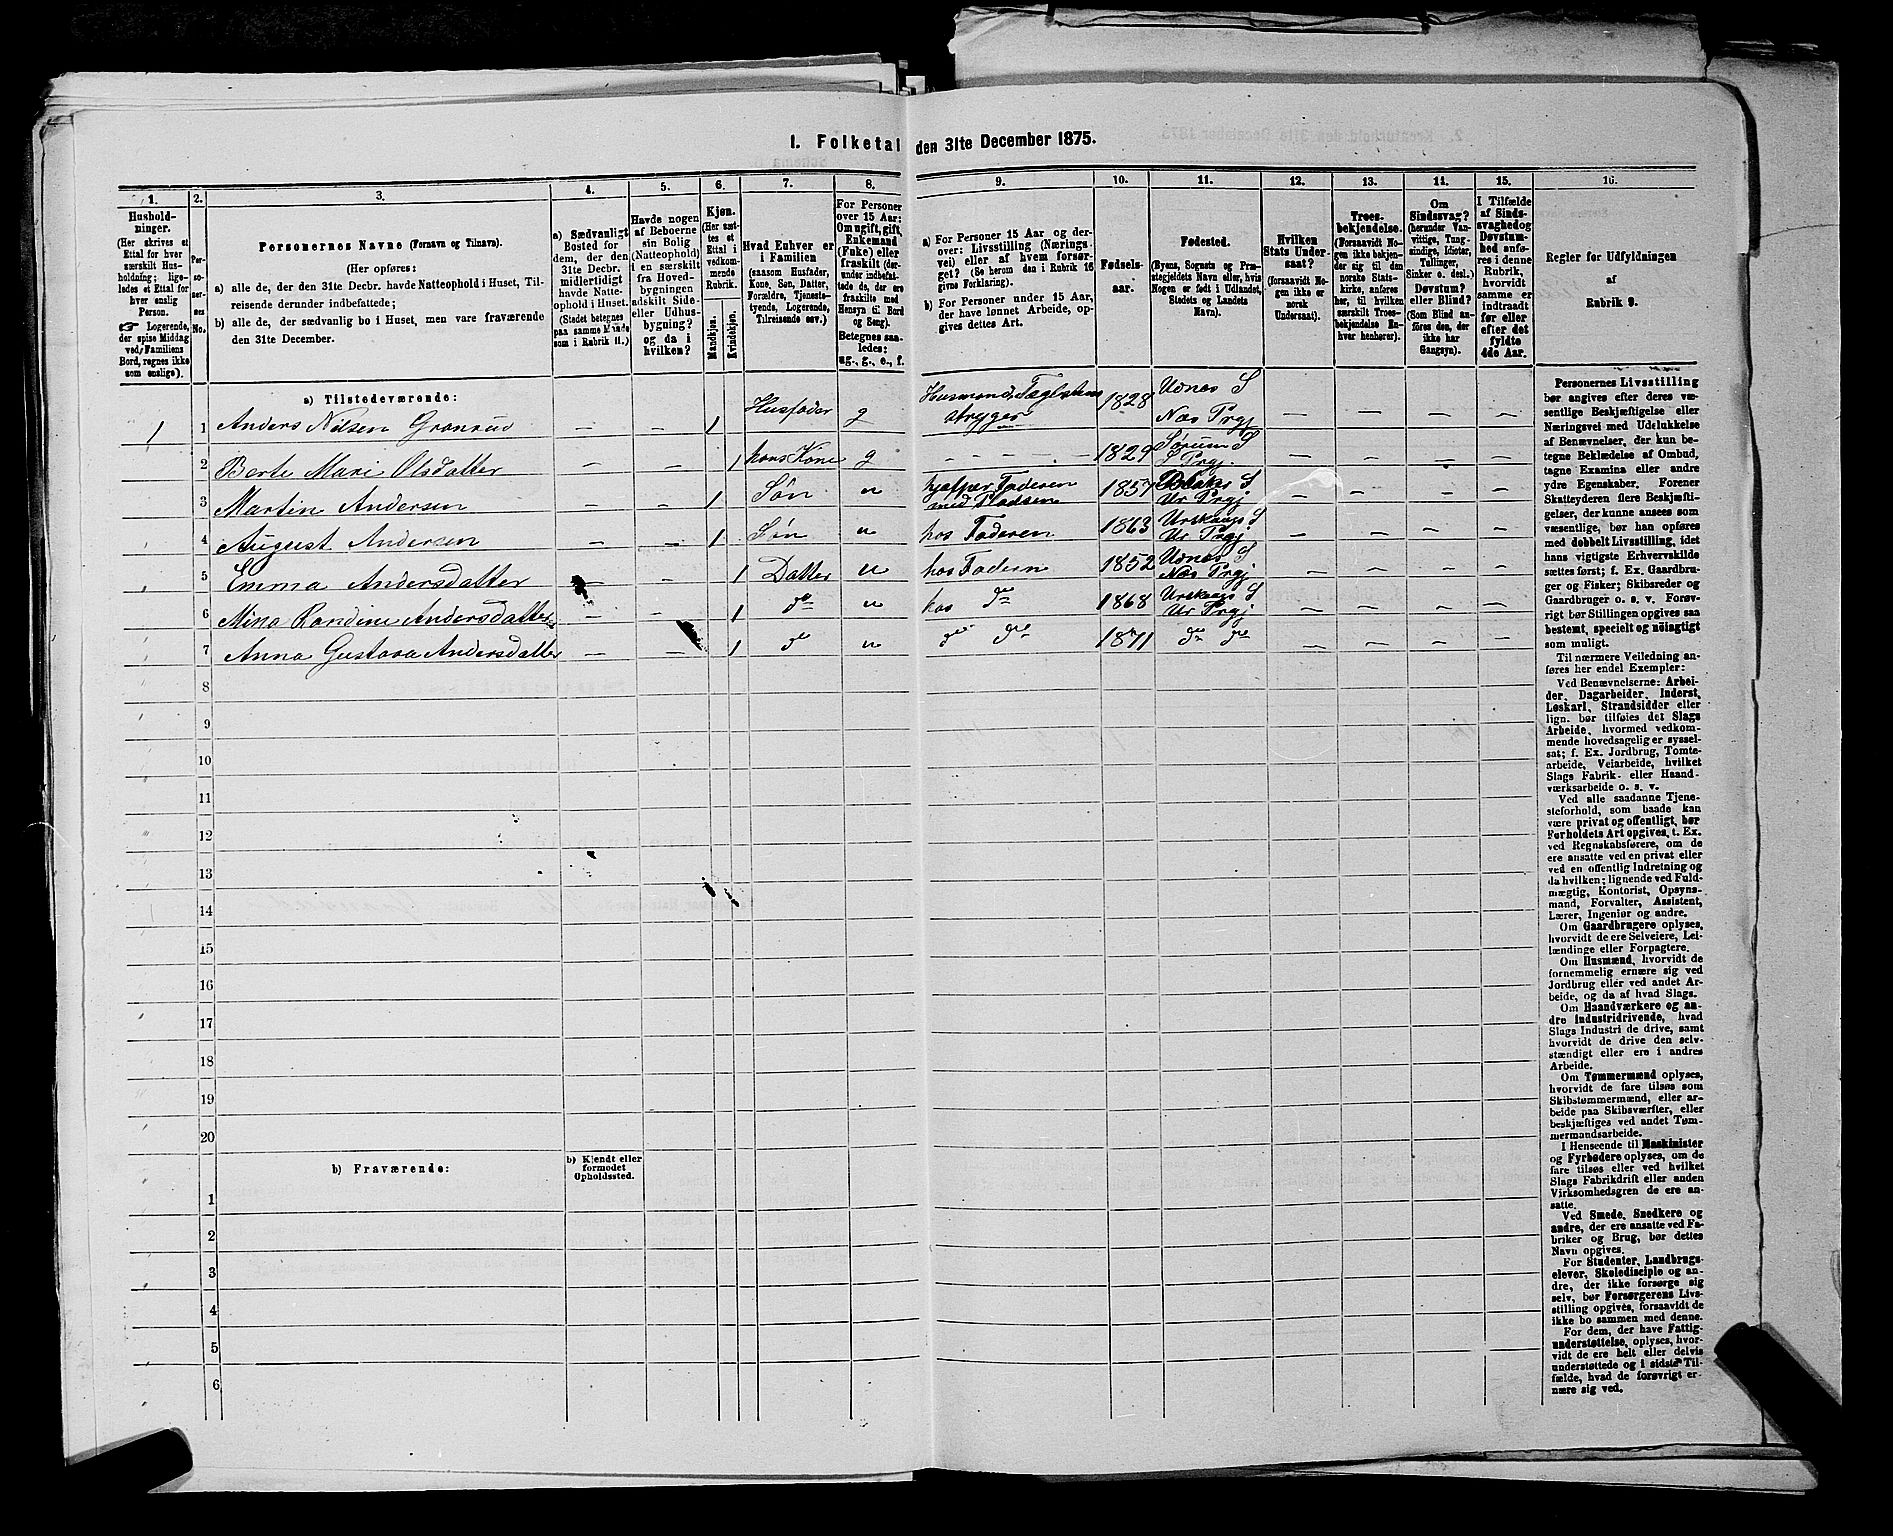 1. Folketal den 31te December 1875.
1.
2.
3.
4.
5.
6.
7.
8.
9.
10.
11.
12.
13.
14.
15.
16.
Hushold-
ninger.
(Her skrives et
Ettal for hver
særskilt Hus-
holdning; lige-
ledes et Ettal for
hver enslig
Person.
☞ Logerende,
der spise Middag
ved Familiens
Bord, regnes ikke
som enslige).
Per-
so-
ner-
nes
No.
Personernes Navne (Fornavn og Tilnavn).
(Her opføres:
a) alle de, der den 31te Decbr. havde Natteophold i Huset, Til-
reisende derunder indbefattede;
b) alle de, der sædvanlig bo i Huset, men vare fraværende
den 31te December.
a) Sædvanligt
Bosted for
dem, der den
31te Decbr.
midlertidigt
havde Natte-
ophold i Huset.
(Stedet betegnes
paa samme Maade
som i Rubrik 11.)
Havde nogen
af Beboerne
sin Bolig
(Natteophold)
i en særskilt
fra Hoved-
bygningen
adskilt Side-
eller Udhus-
bygning?
og da i
hvilken?
Kjøn.
(Her sæt-
tes et
Ettal i
vedkom-
mende
Rubrik.
Mandkjøn.
Kvindekjøn.
Hvad Enhver er
i Familien
(saasom Husfader,
Kone, Søn, Datter,
Forældre, Tjeneste-
tyende, Logerende,
Tilreisende osv.)
For Personer
over 15 Aar:
Om ugift, gift,
Enkemand
(Enke) eller
fraskilt (der-
under indbefat-
tede de, der ere
fraskilte med
Hensyn til Bord
og Seng).
Betegnes saa-
ledes:
ug., g., e., f.
a) For Personer 15 Aar og der-
over: Livsstilling (Nærings-
vei) eller af hvem forsør-
get? (Se herom den i Rubrik 16
givne Forklaring).
b) For Personer under 15 Aar,
der have lønnet Arbeide, op-
gives dettes Art.
Fødsels-
aar.
Fødested.
(Byens, Sognets og Præ-
stegjeldets Navn eller, hvis
Nogen er født i Udlandet,
Stedets og Landets
Navn).
Hvilken
Stats Under-
saat?
(forsaavidt No-
gen ikke er
norsk
Undersaat).
Troes-
bekjendelse.
(Forsaavidt No-
gen ikke bekjen-
der sig til den
norske Stats-
kirke, anføres
her, til hvilken
særskilt Troes-
bekjendelse En-
hver henhører).
Om
Sindssvag?
(herunder Van-
vittige, Tung-
sindige, Idioter,
Tullinger,
Sinker o. desl.)
Døvstum?
eller Blind?
(Som Blind an-
føres den, der
ikke har
Gangsyn).
I Tilfælde
af Sinds-
svaghed og
Døvstum-
hed anfø-
res i denne
Rubrik,
hvorvidt
samme er
indtraadt
før eller
efter det
fyldte
4de Aar.
Regler for Udfyldningen
af
Rubrik 9.
a) Tilstedeværende:
1 1 Anders Nilsen Gransrud — — 1 Husfader g Husmand, Teglstens stryger 1828 Udnæs S Næs Prgj — — — —
2 Berte Mari Olsdatter — — 1 hans Kone g - - - - 1829 Sørum S S Prgj. — — — —
3 Martin Andersen — — 1 Søn u hjelper Faderen med Pladsen 1857 Blaker S Ur Prgj — — — —
4 August Andersen — — 1 Søn u hos Faderen 1863 Urskougs S Ur Prgj — — — —
5 Emma Andersdatter — — 1 Datter u hos Fadern 1852 Udnæs S Næs Prgj — — — —
6 Mina Randine Andersdatter — — 1 do u hos do 1868 Urskougs S Ur Prgj — — — —
7 Anna Gustava Andersdatter — — 1 do u do do 1871 do do — — — —
8
9
10
11
12
13
14
15
16
17
18
19
20
b) Fraværende:
b) Kjendt eller
formodet
Opholdssted.
1
2
3
4
5
6
Personernes Livsstilling
bør angives efter deres væ-
sentlige Beskjæftigelse eller
Næringsvei med Udelukkelse
af Benævnelser, der kun be-
tegne Beklædelse af Ombud,
tagne Examina eller andre
ydre Egenskaber. Forener
Skatteyderen flere Beskjæfti-
gelser, der kunne ansees som
væsentlige, bør han opføres
med dobbelt Livsstilling, idet
hans vigtigste Erhvervskilde
sættes først; f. Ex. Gaardbru-
ger og Fisker; Skibsreder og
Gaardbruger o. s. v. Forøv-
rigt bør Stillingen opgives saa
bestemt, specielt og nøiagtigt
som muligt.
Til nærmere Veiledning an-
føres her endel Exempler:
Ved Benævnelserne: Arbei-
der, Dagarbeider, Inderst,
Løskarl, Strandsidder eller
lign. bør tilføies det Slags
Arbeide, hvormed vedkom-
mende hovedsagelig er syssel-
sat; f. Ex. Jordbrug, Tomte-
arbeide, Veiarbeide, hvilket
Slags Fabrik- eller Haand-
værksarbeide o. s. v.
Ved alle saadanne Tjene-
steforhold, som baade kan
være privat og offentligt, bør
Forholdets Art opgives, t. Ex.
ved Regnskabsførere, om de
ere ansatte ved en privat eller
ved en offentlig Indretning og
da hvilken; lignende ved Fuld-
mægtig, Kontorist, Opsyns-
mand, Forvalter, Assistent,
Lærer, Ingeniør og andre.
Om Gaardbrugere oplyses,
hvorvidt de ere Selveiere, Lei-
lændinge eller Forpagtere.
Om Husmænd, hvorvidt de
fornemmelig ernære sig ved
Jordbrug eller ved andet Ar-
beide, og da af hvad Slags.
Om Haandværkere og an-
dre Industridrivende, hvad
Slags Industri de drive, samt
hvorvidt de drive den selv-
stændigt eller ere i andres
Arbeide.
Om Tømmermænd oplyses,
hvorvidt de fare tilsøs som
Skibstømmermænd, eller ar-
beide paa Skibsværfter, eller
beskjæftiges ved andet Tøm-
mermandsarbeide.
I Henseende til Maskinister
og Fyrbødere oplyses, om de
fare tilsøs eller ved hvilket
Slags Fabrikdrift eller anden
Virksomhedsgren de ere an-
satte.
Ved Smede, Snedkere og
andre, der ere ansatte ved Fa-
briker og Brug, bør dettes
Navn opgives.
For Studenter, Landbrugs-
elever, Skoledisciple og an-
dre, der ikke forsørge sig
selv, bør Forsørgerens Livs-
stilling opgives, forsaavidt de
ikke bo sammen med denne.
For dem, der have Fattig-
understøttelse, oplyses, hvor-
vidt de ere helt eller delvis
understøttede og i sidste Til-
fælde, hvad de forøvrigt er-
nære sig ved.